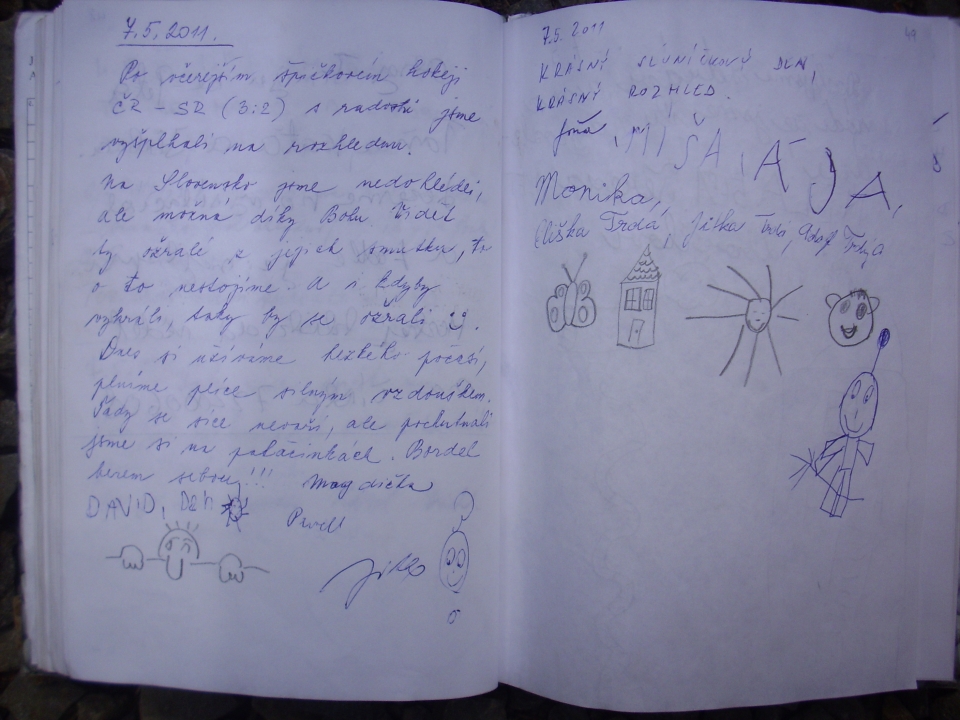 7.5.2011.
Po včerejším špičkovém hokeji
ČR - SR (3:2) s radostí jsme
vyšplhali na rozhlednu.
Na Slovensko jsme nedohlédli,
ale možná díky Bohu. Vidět
ty ožralé z jejich smutku, to
o to nestojíme. A i kdyby
vyhráli, taky by se ožrali
Dnes si užíváme hezkého počasí,
plníme plíce silným vzdouškem.
Tady se sice nevaří, ale pochutnali
jsme si na palačinkách. Bordel
berem sebou!!! Magdička
DAVID,
Pavel
7.5. 2011
49
KRÁSNÝ SLUNÍČKOVÝ DEN,
KRÁSNÝ ROZHLED.
MÍŠA, ÁJA,
Monika,
Eliška Trdá, Jitka Trdá, Adof Trdý